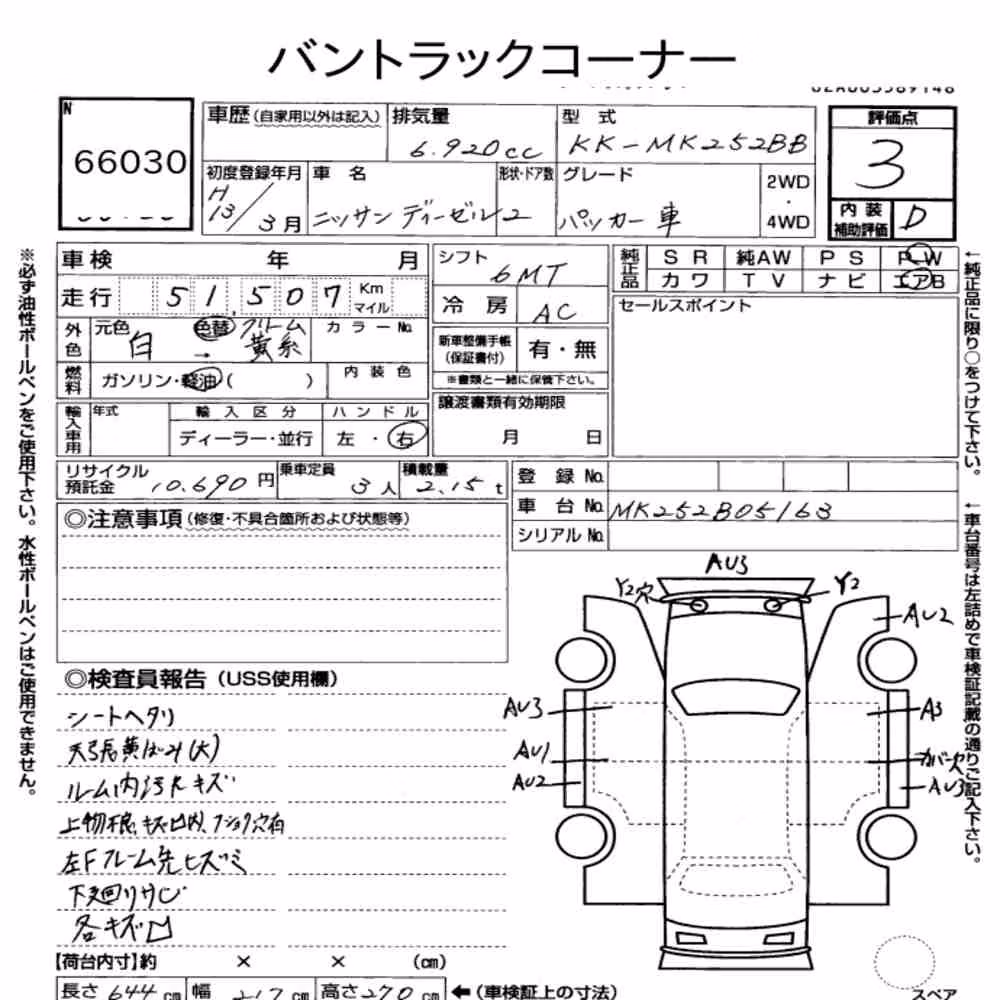 バントラックコーナー
N
66030
車歴 (自家用以外は記入)
排気量
6.920cc
型式
KK-MK252BB
評価点
3
初度登録年月
H13/3月
車名
ニッサンディーゼル
形状・ドア数
グレード
パッカー車
2WD
・
4WD
内装
補助評価
D
車検 年 月
シフト
6MT
純正品
SR 純AW PS PW
カワ TV ナビ エアB
走行 51,507 Km
マイル
冷房 AC
セールスポイント
外色
元色
白
色替
→
クリーム
黄系
カラーNo.
新車整備手帳
(保証書付)
有・無
※書類と一緒に保管下さい。
燃料
ガソリン・軽油( )
内装色
譲渡書類有効期限
月 日
輸入車用
年式
輸入区分
ディーラー・並行
ハンドル
左・右
リサイクル
預託金
10.690円
乗車定員
3人
積載量
2.15t
登録No.
車台No. MK252B05163
シリアルNo.
◎注意事項(修復・不具合箇所および状態等)
◎検査員報告(USS使用欄)
シートヘタリ
天張黄ばみ(大)
ルーム内汚れキズ
左Fフレーム先ヒズミ
下廻りサビ
各キズ凹
【荷台内寸】約 × × (cm)
長さ 644cm 幅 217cm 高さ 270cm ←(車検証上の寸法)
AU3
Y2穴
Y2
AU2
AU3
A3
AU1
カバー欠
AU2
AU3
スペア
※必ず油性ボールペンをご使用下さい。水性ボールペンはご使用できません。
←純正品に限り○をつけて下さい。
←車台番号は左詰めで車検証記載の通りご記入下さい。